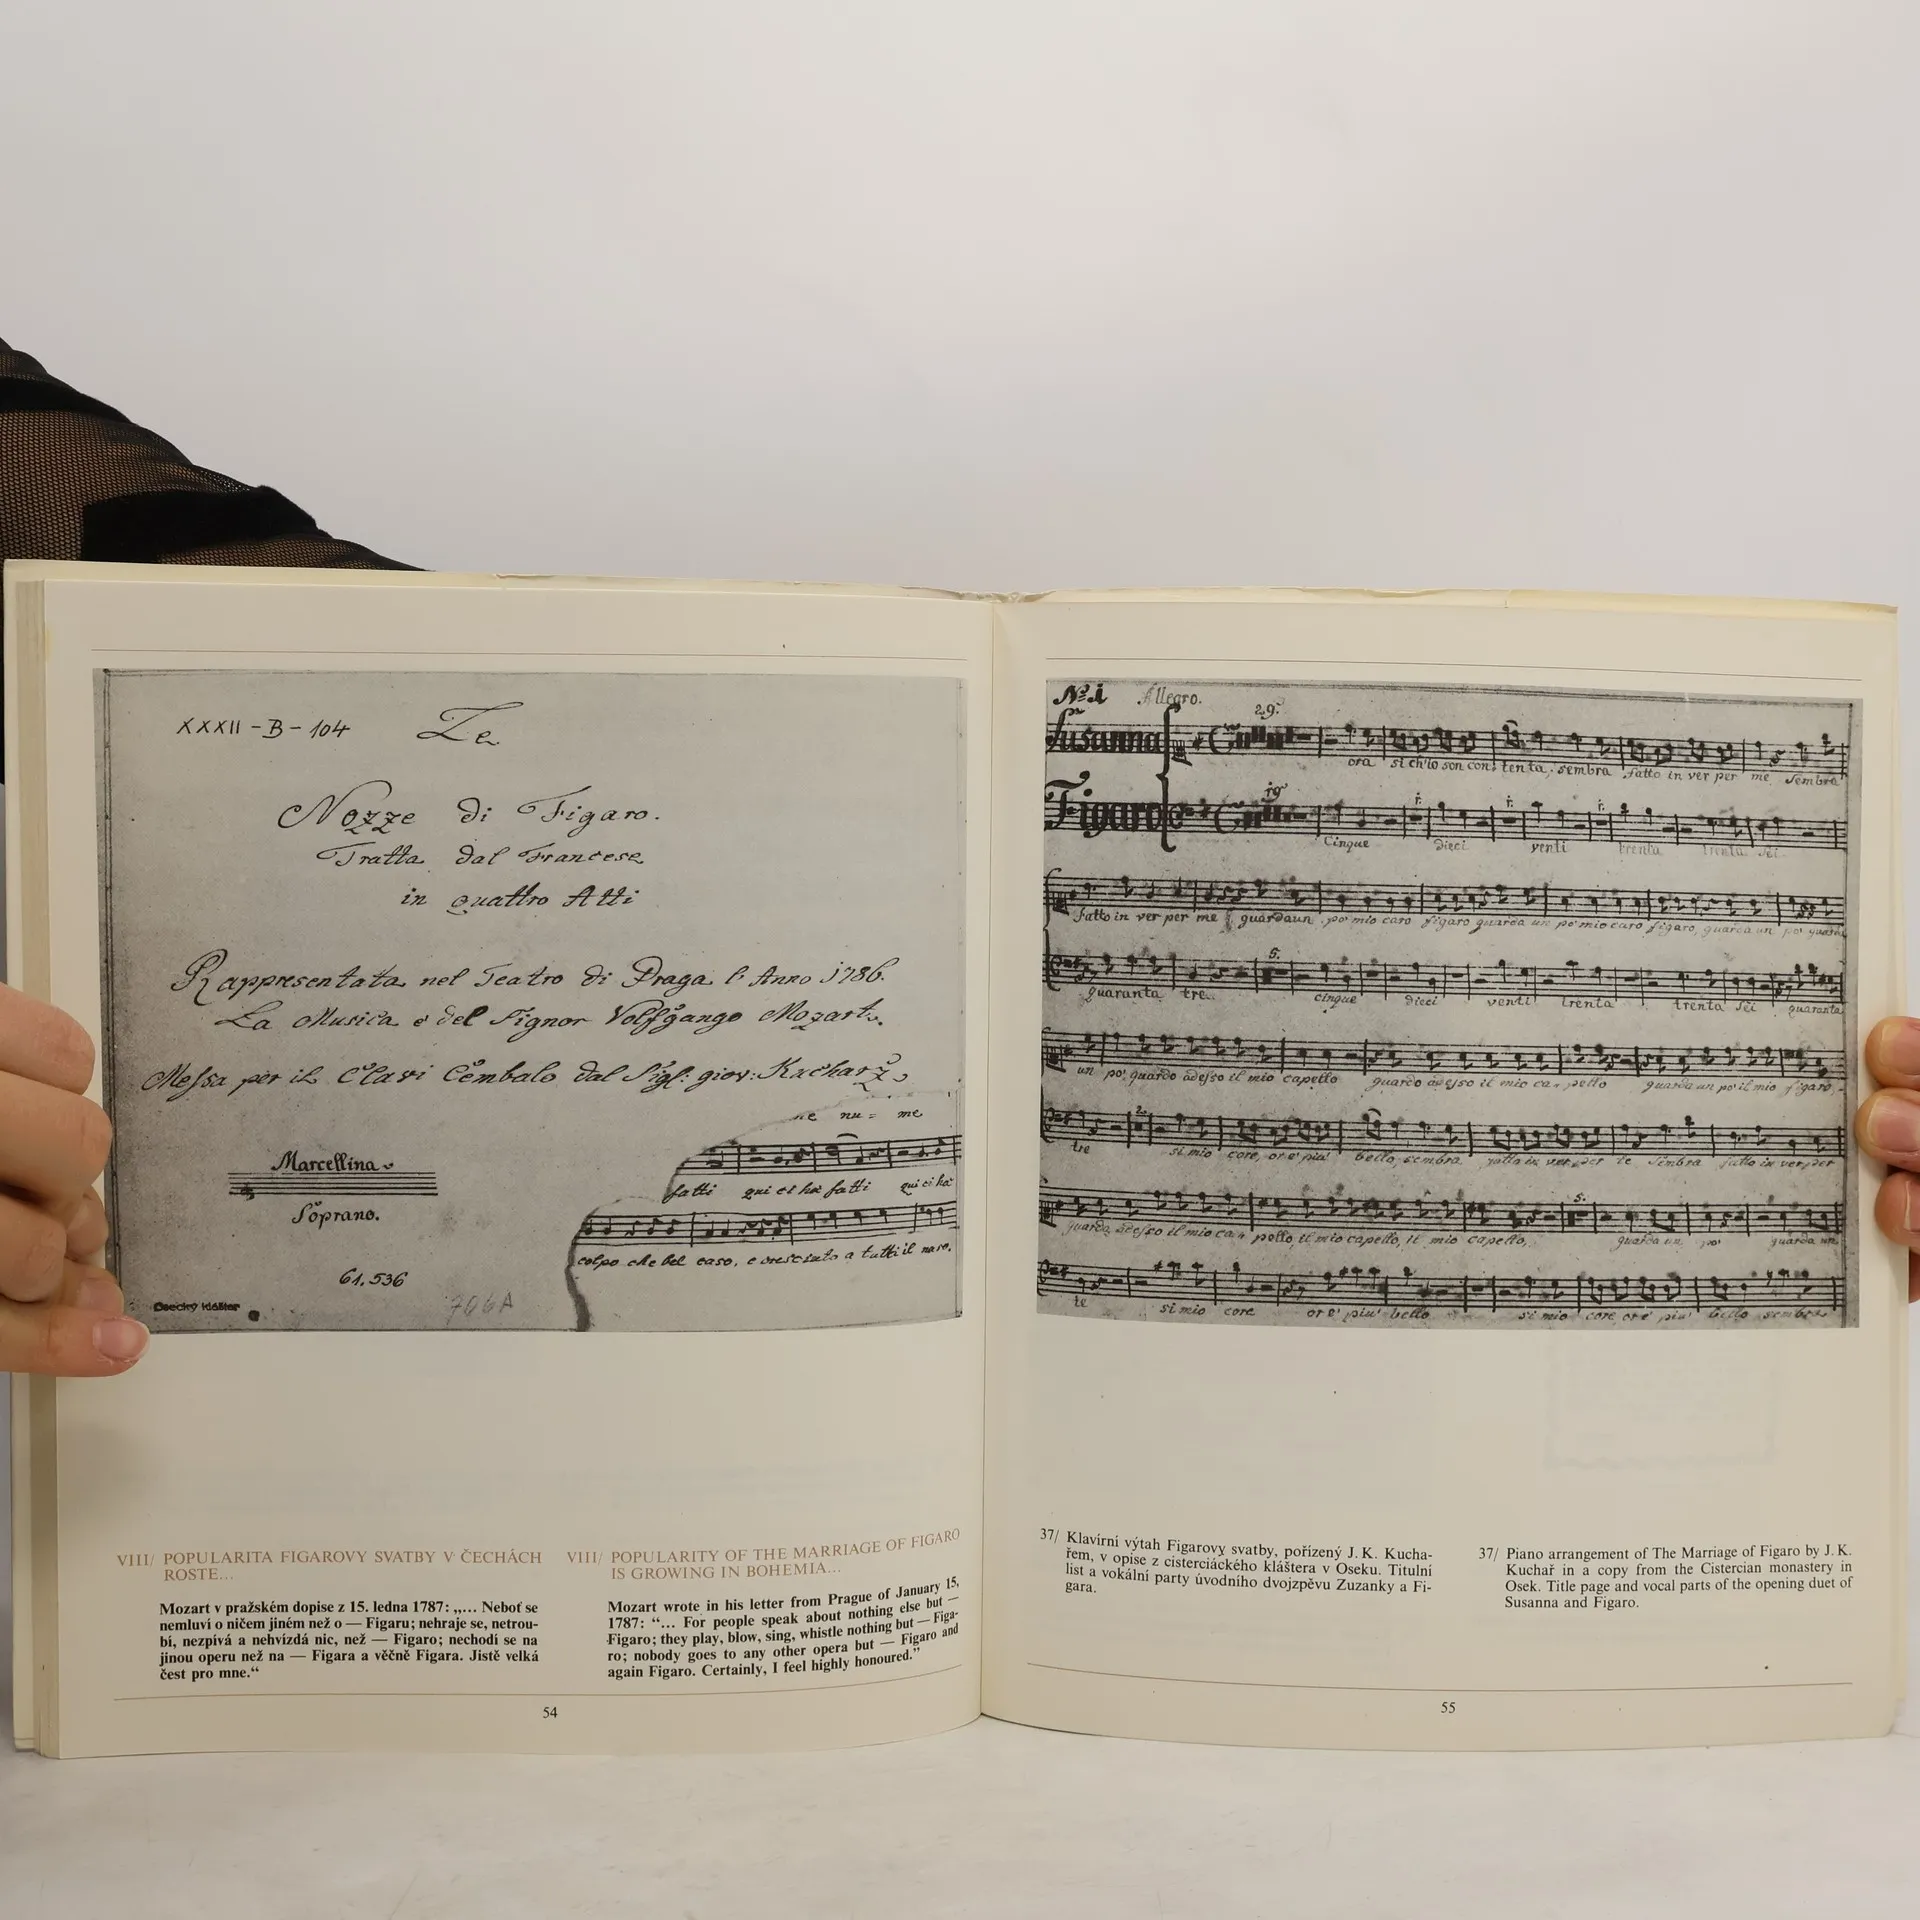 XXXII-B-104 Le
Nozze di Figaro.
Tratta dal Francese
in quattro Atti
Rappresentata nel Teatro di Praga l'Anno 1786.
La Musica e del Signor Volfgango Mozart.
Messa per il Clavi Cembalo dal Sigl: giov: Kucharz
ne nu = me
Marcellina
fatti qui ci ha fatti qui ci ha
Soprano.
colpo che bel caso, e cresciuto a tutti il naso.
61.536
Osecký klášter
706A
VIII/ POPULARITA FIGAROVY SVATBY V ČECHÁCH
ROSTE...
Mozart v pražském dopise z 15. ledna 1787: „... Neboť se
nemluví o ničem jiném než o — Figaru; nehraje se, netrou-
bí, nezpívá a nehvízdá nic, než — Figaro; nechodí se na
jinou operu než na — Figara a věčně Figara. Jistě velká
čest pro mne.“
VIII/ POPULARITY OF THE MARRIAGE OF FIGARO
IS GROWING IN BOHEMIA...
Mozart wrote in his letter from Prague of January 15,
1787: “... For people speak about nothing else but —
Figaro; they play, blow, sing, whistle nothing but — Figa-
ro; nobody goes to any other opera but — Figaro and
again Figaro. Certainly, I feel highly honoured.”
54
No. 1 Allegro.
29.
Susanna
ora si ch'io son contenta, sembra fatto in ver per me sembra
19
Figaro
Cinque dieci venti trenta trenta sei
fatto in ver per me guarda un po' mio caro figaro guarda un po mio caro figaro, guarda un po' guarda
5.
quaranta tre. cinque dieci venti trenta trenta sei quaranta
un po' guardo adesso il mio capello guardo adesso il mio capello guarda un po il mio figaro
2.
tre si mio core, or e' piu' bello, sembra fatto in ver per te sembra fatto in ver per
5.
guarda adesso il mio capello, il mio capello, il mio capello, guarda un po' guarda un
te si mio core or e' piu' bello si mio core or e' piu' bello sembra
37/ Klavírní výtah Figarovy svatby, pořízený J. K. Kucha-
řem, v opise z cisterciáckého kláštera v Oseku. Titulní
list a vokální party úvodního dvojzpěvu Zuzanky a Fi-
gara.
37/ Piano arrangement of The Marriage of Figaro by J. K.
Kuchař in a copy from the Cistercian monastery in
Osek. Title page and vocal parts of the opening duet of
Susanna and Figaro.
55